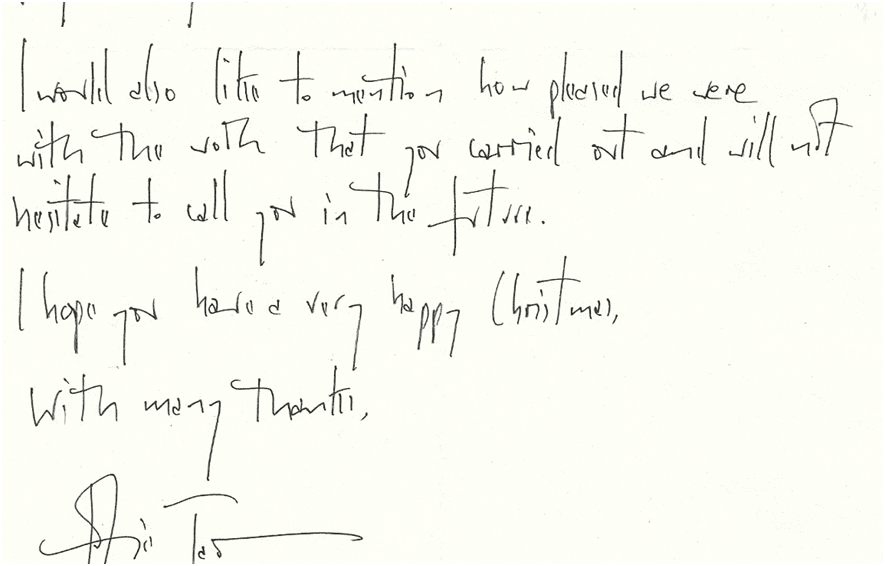 I would also like to mention how pleased we were
with the work that you carried out and will not
hesitate to call you in the future.
I hope you have a very happy Christmas,
With many thanks,